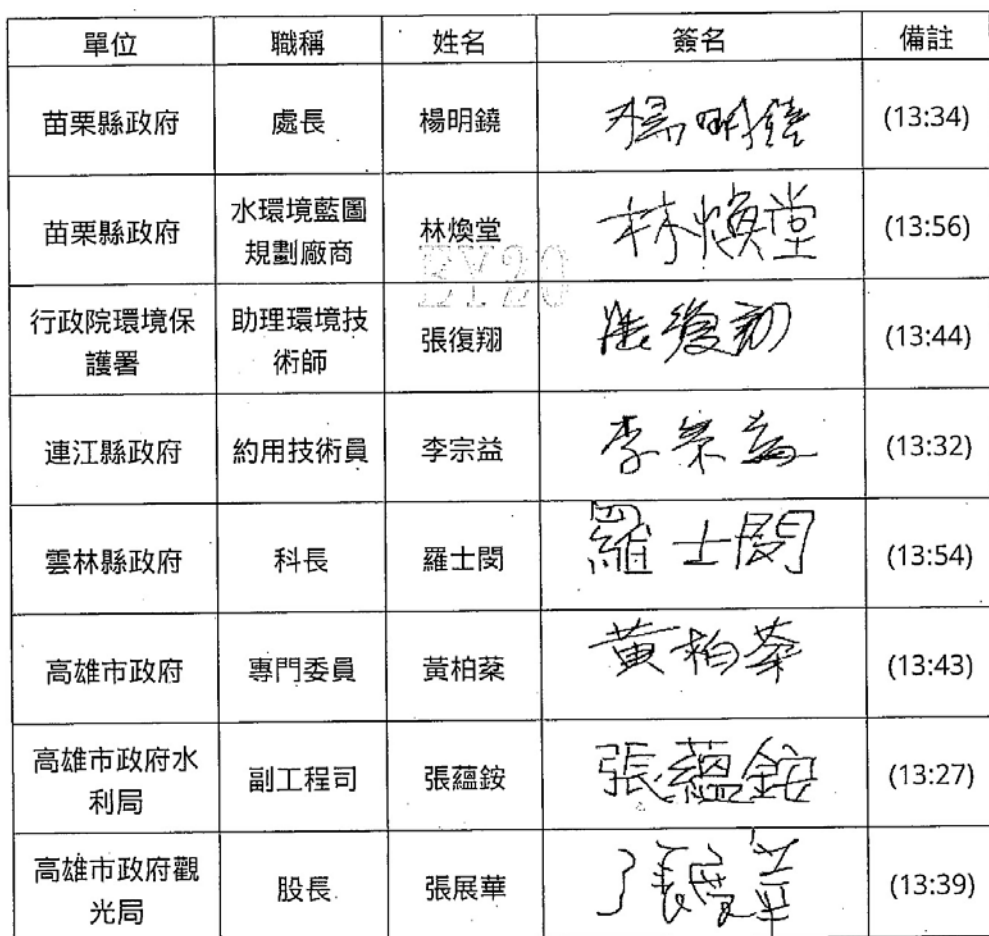 單位 職稱 姓名 簽名 備註
苗栗縣政府 處長 楊明鐃 楊明鐃 (13:34)
苗栗縣政府 水環境藍圖 林煥堂 林煥堂 (13:56)
規劃廠商
EY20
行政院環境保 助理環境技 張復翔 張復翔 (13:44)
護署 術師
連江縣政府 約用技術員 李宗益 李宗益 (13:32)
雲林縣政府 科長 羅士閔 羅士閔 (13:54)
高雄市政府 專門委員 黃柏棻 黃柏棻 (13:43)
高雄市政府水 副工程司 張蘊銨 張蘊銨 (13:27)
利局
高雄市政府觀 股長 張展華 張展華 (13:39)
光局